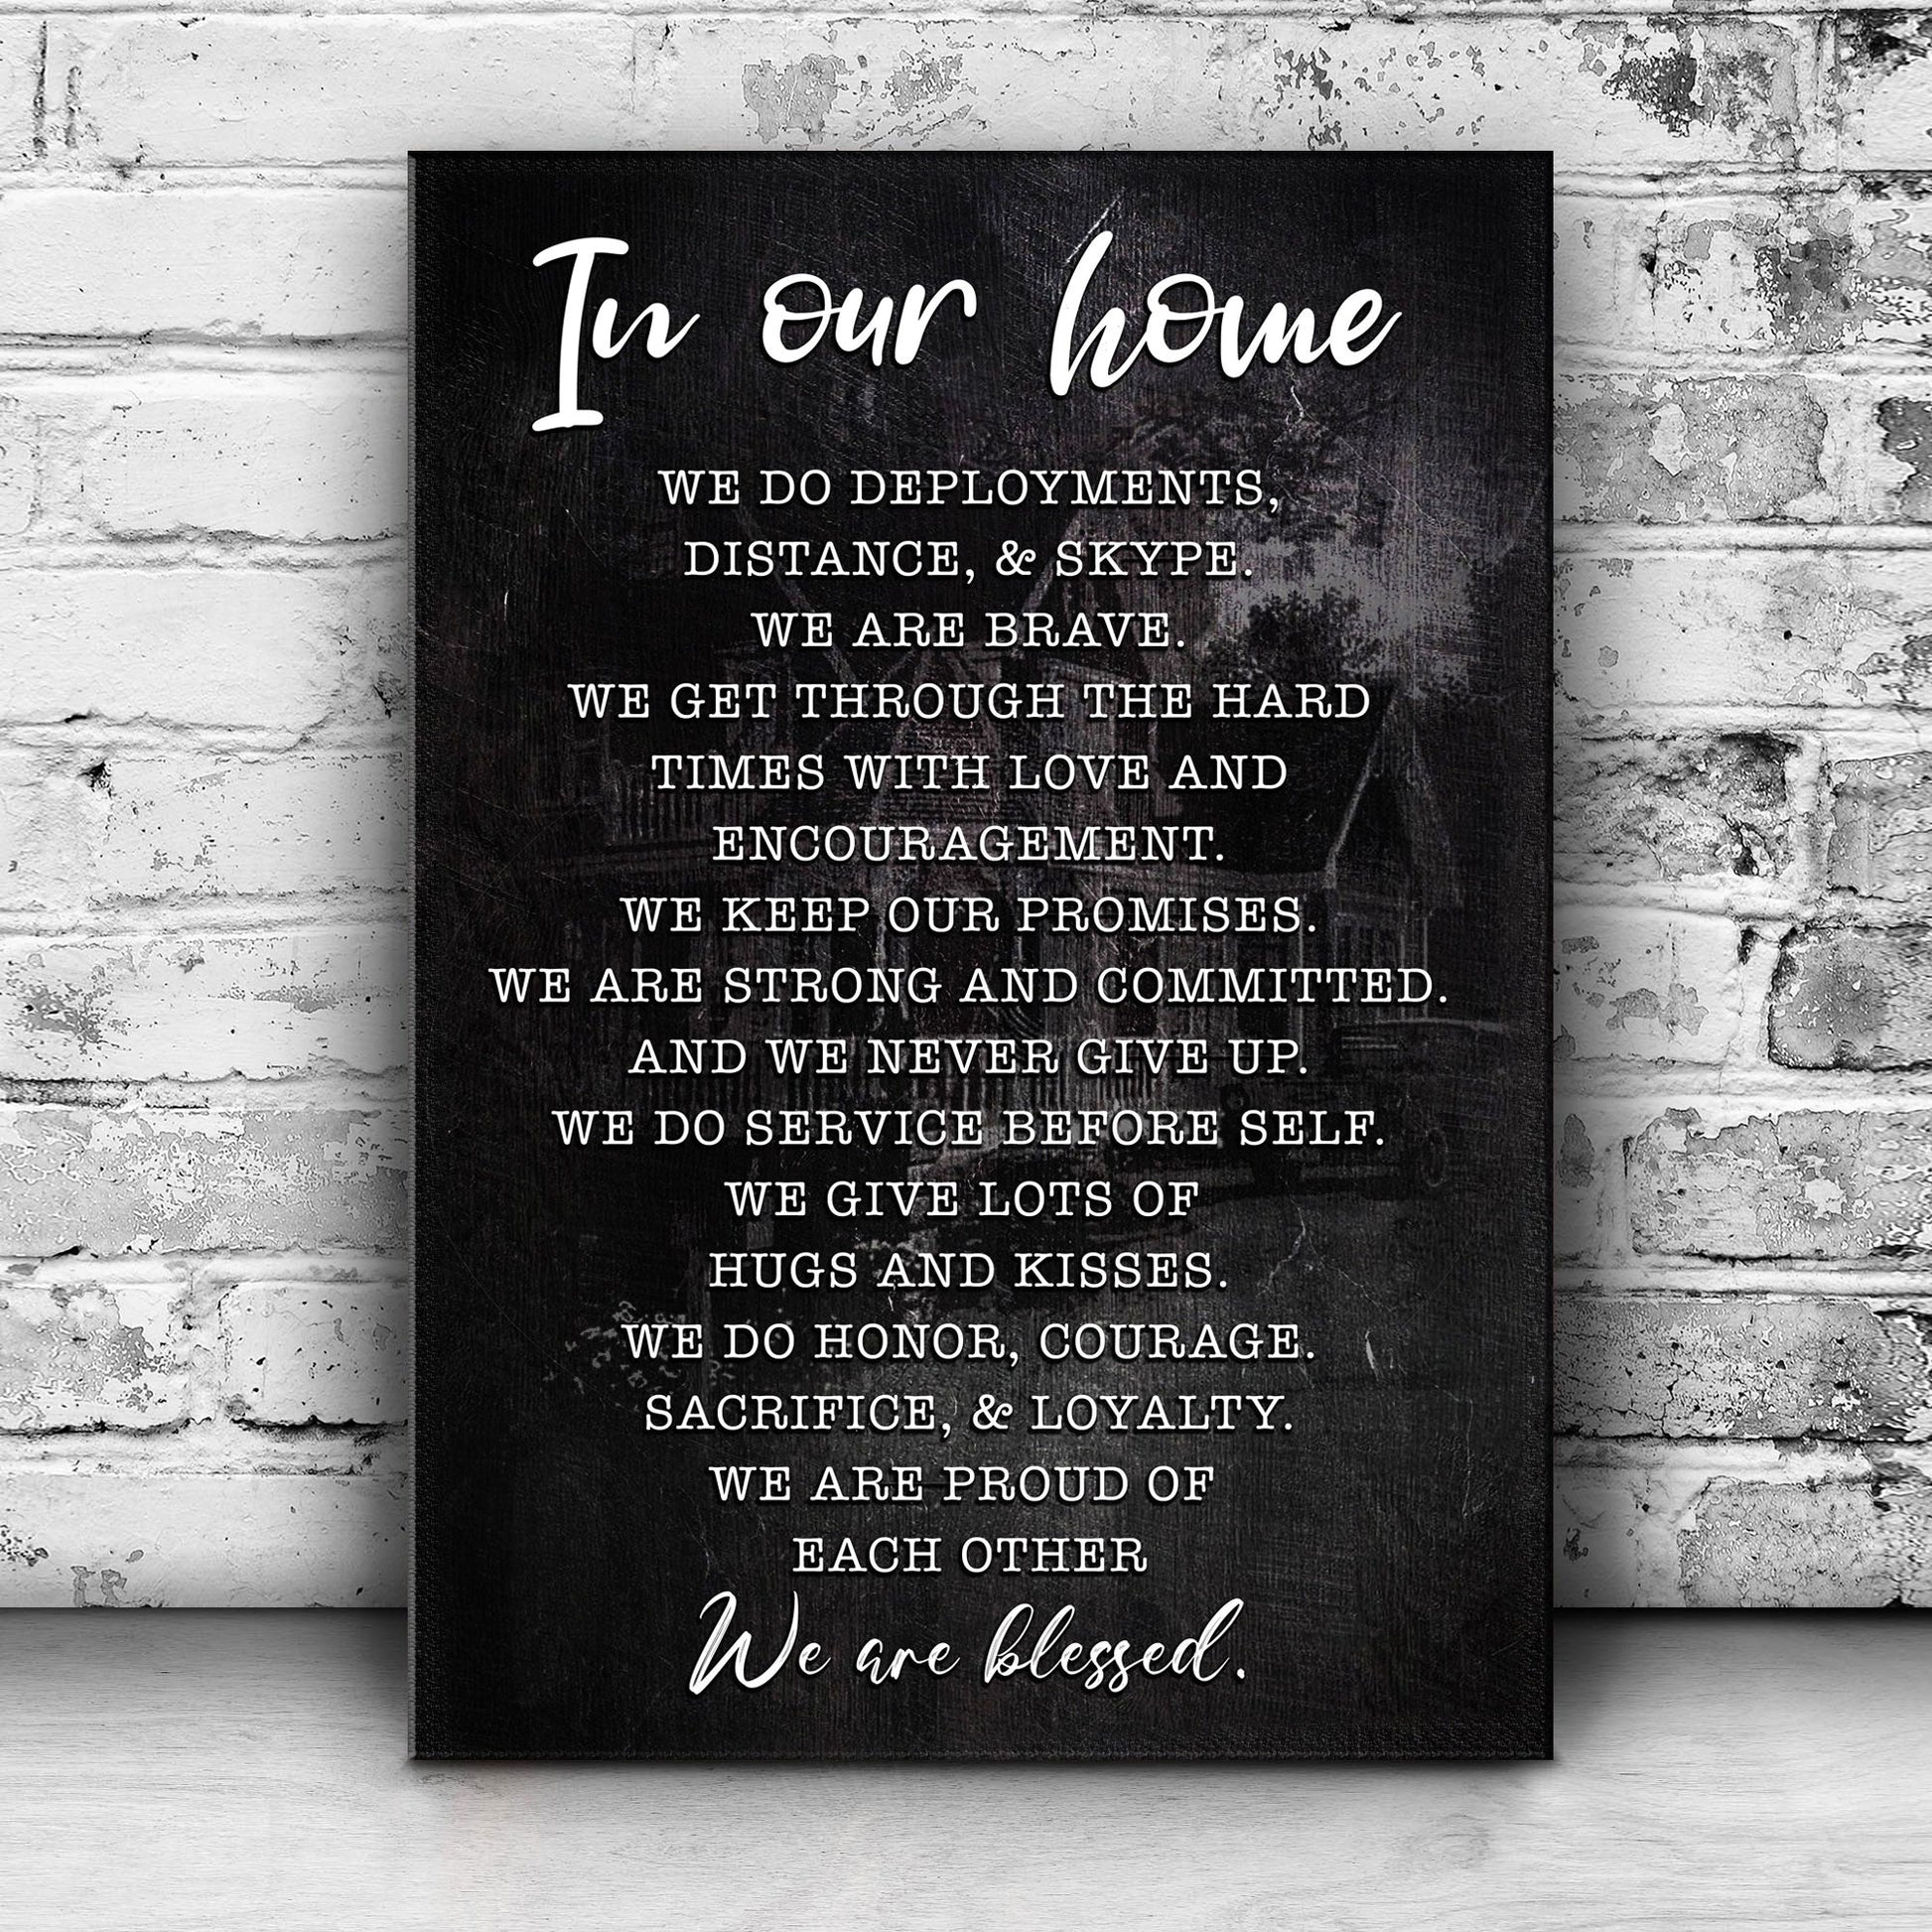 In our home
WE DO DEPLOYMENTS,
DISTANCE, & SKYPE.
WE ARE BRAVE.
WE GET THROUGH THE HARD
TIMES WITH LOVE AND
ENCOURAGEMENT.
WE KEEP OUR PROMISES.
WE ARE STRONG AND COMMITTED.
AND WE NEVER GIVE UP.
WE DO SERVICE BEFORE SELF.
WE GIVE LOTS OF
HUGS AND KISSES.
WE DO HONOR, COURAGE.
SACRIFICE, & LOYALTY.
WE ARE PROUD OF
EACH OTHER
We are blessed.